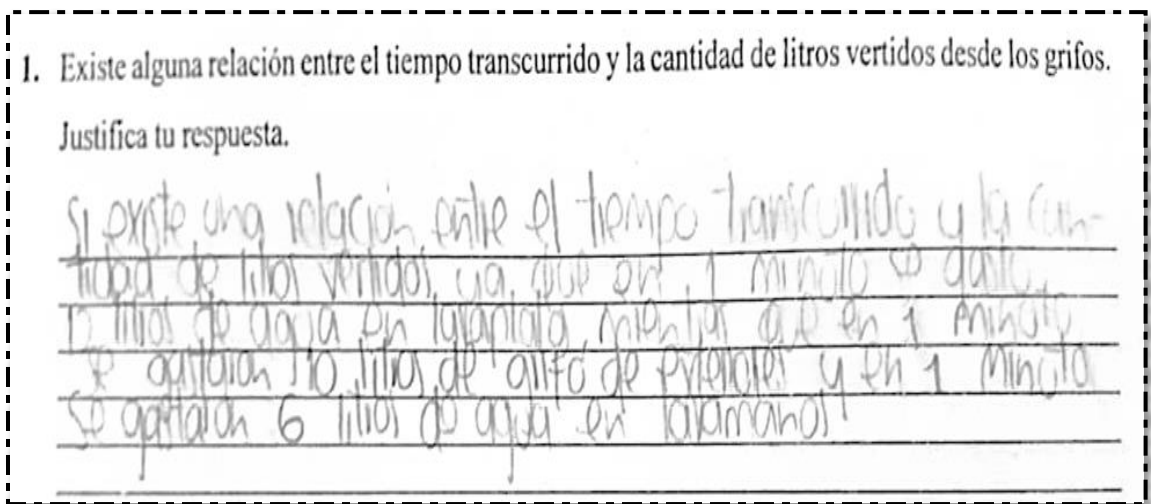 1. Existe alguna relación entre el tiempo transcurrido y la cantidad de litros vertidos desde los grifos.
Justifica tu respuesta.
Si existe una relación entre el tiempo transcurrido y la can-
tidad de litros vertidos, ya que en 1 minuto se gasta
12 litros de agua en lavaplato, mientras que en 1 minuto
se gastaron 10 litros de grifo de exteriores y en 1 minuto
se gastaron 6 litros de agua en lavamanos